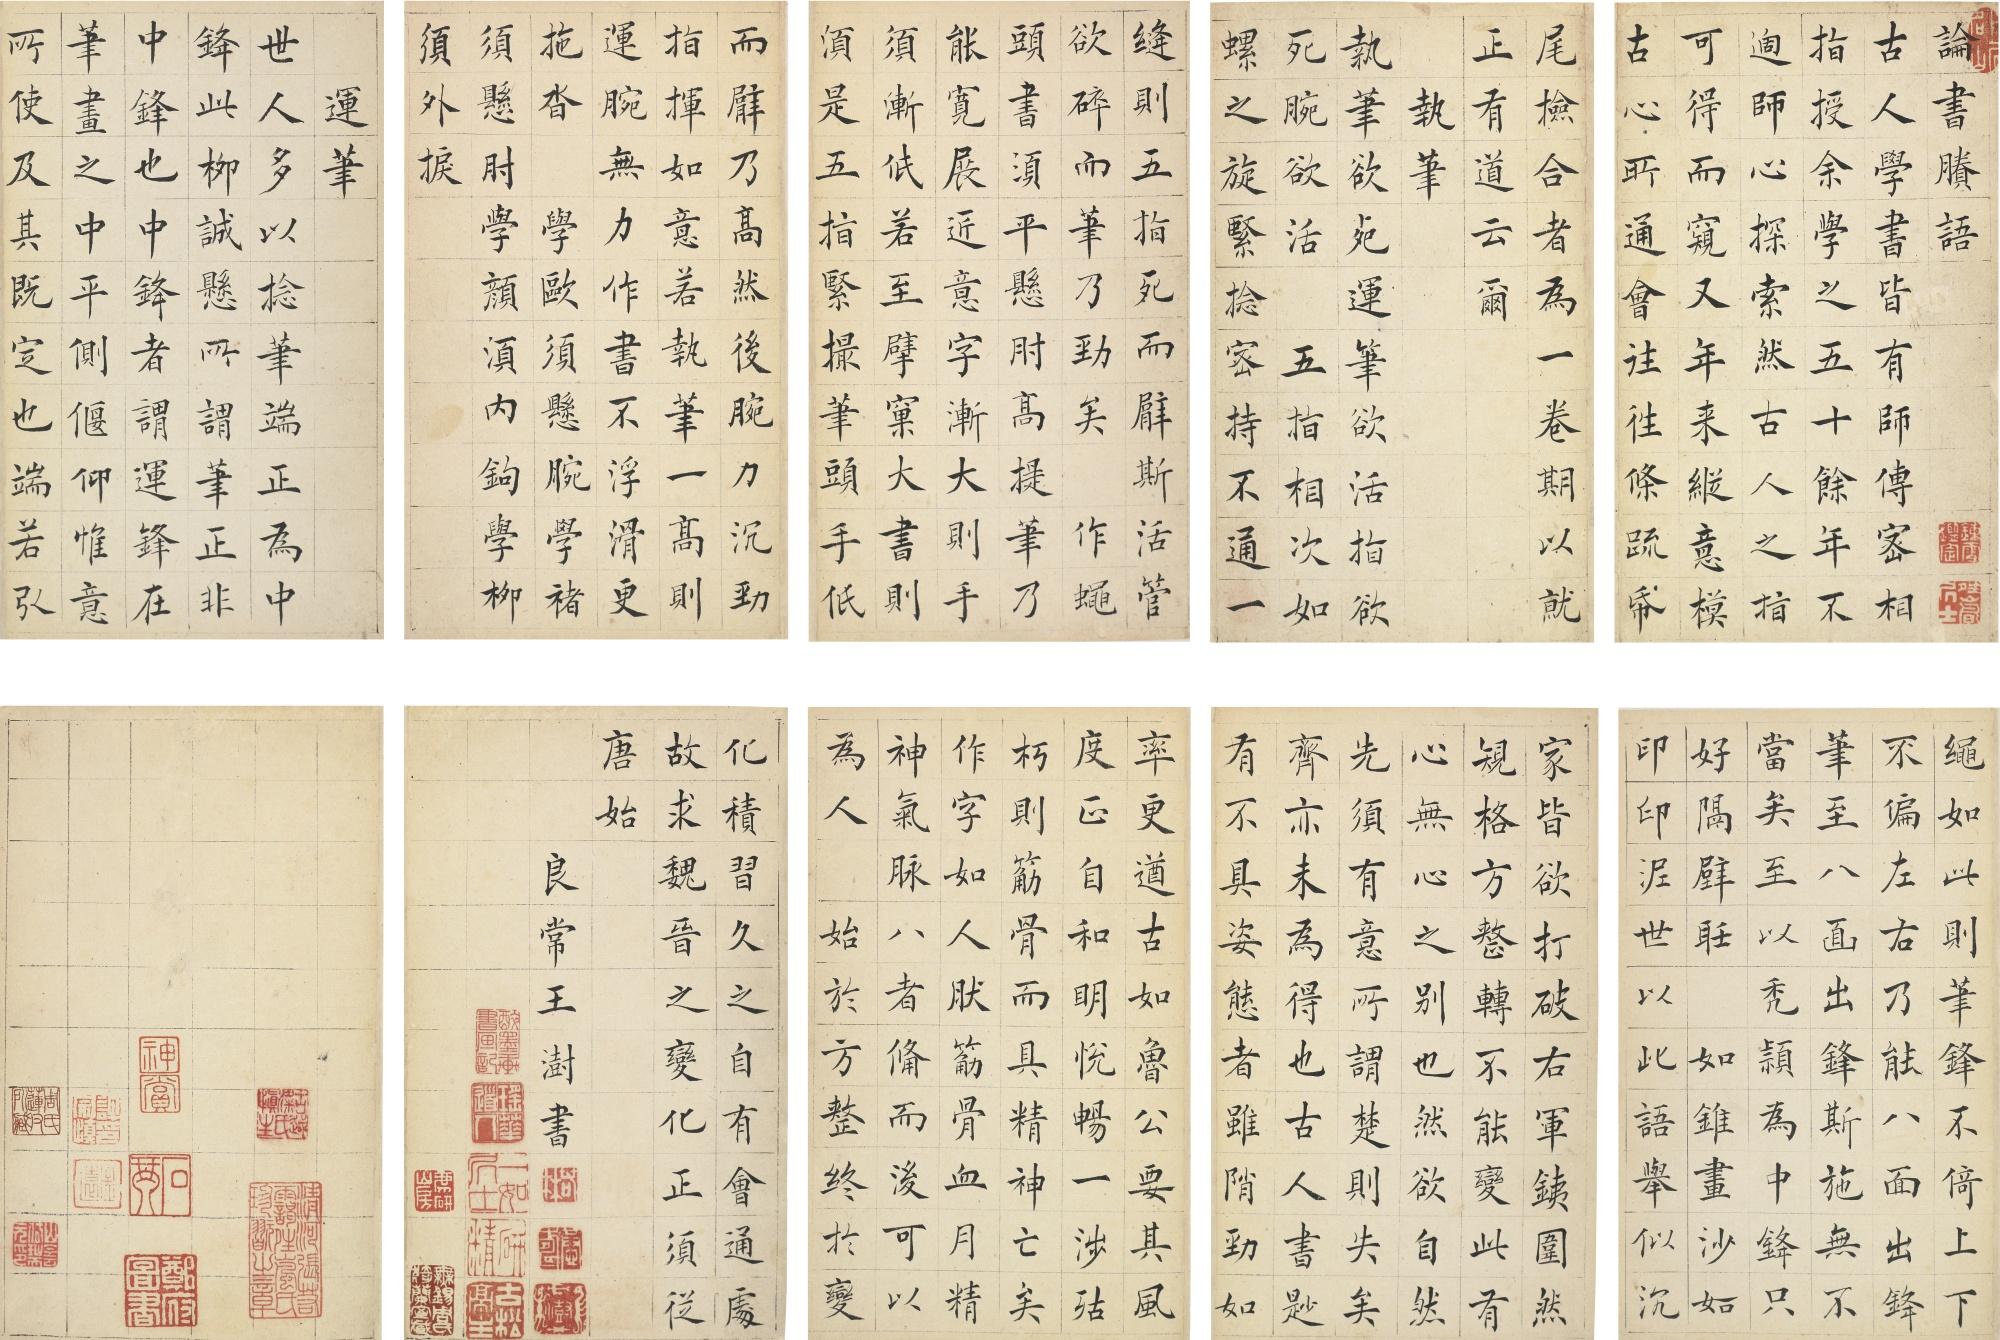 論書賸語
古人學書皆有師傳密相
指授余學之五十餘年不
逈師心探索然古人之指
可得而窺又年来縱意模
古心所通會往往條疏帋
尾撿合者為一卷期以就
正有道云爾
執筆
執筆欲死運筆欲活指欲
死腕欲活 五指相次如
螺之旋緊捻密持不通一
縫則五指死而臂斯活管
欲碎而筆乃勁矣 作蠅
頭書須平懸肘高提筆乃
能寬展近意字漸大則手
須漸低若至擘窠大書則
須是五指緊撮筆頭手低
而臂乃高然後腕力沉勁
指揮如意若執筆一高則
運腕無力作書不浮滑更
拖沓 學歐須懸腕學褚
須懸肘 學顏須内鉤學柳
須外捩
運筆
世人多以捻筆端正為中
鋒此柳誠懸所謂筆正非
中鋒也中鋒者謂運鋒在
筆畫之中平側偃仰惟意
所使及其既定也端若引
繩如此則筆鋒不倚上下
不偏左右乃能八面出鋒
筆至八面出鋒斯施無不
當矣至以禿頴為中鋒只
好隔壁聽 如錐畫沙如
印印泥世以此語舉似沉
家皆欲打破右軍鐵圍然
規格方整轉不能變此有
心無心之別也然欲自然
先須有意所謂楚則失矣
齊亦未為得也古人書𠮷
有不具姿態者雖隋勁如
率更遒古如魯公要其風
度正自和明悅暢一涉𣧑
朽則筋骨而具精神亡矣
作字如人肰筋骨血月精
神氣脉八者偹而後可以
為人 始於方整終於變
化積習久之自有會通處
故求魏晉之變化正須從
唐始
良常王澍書